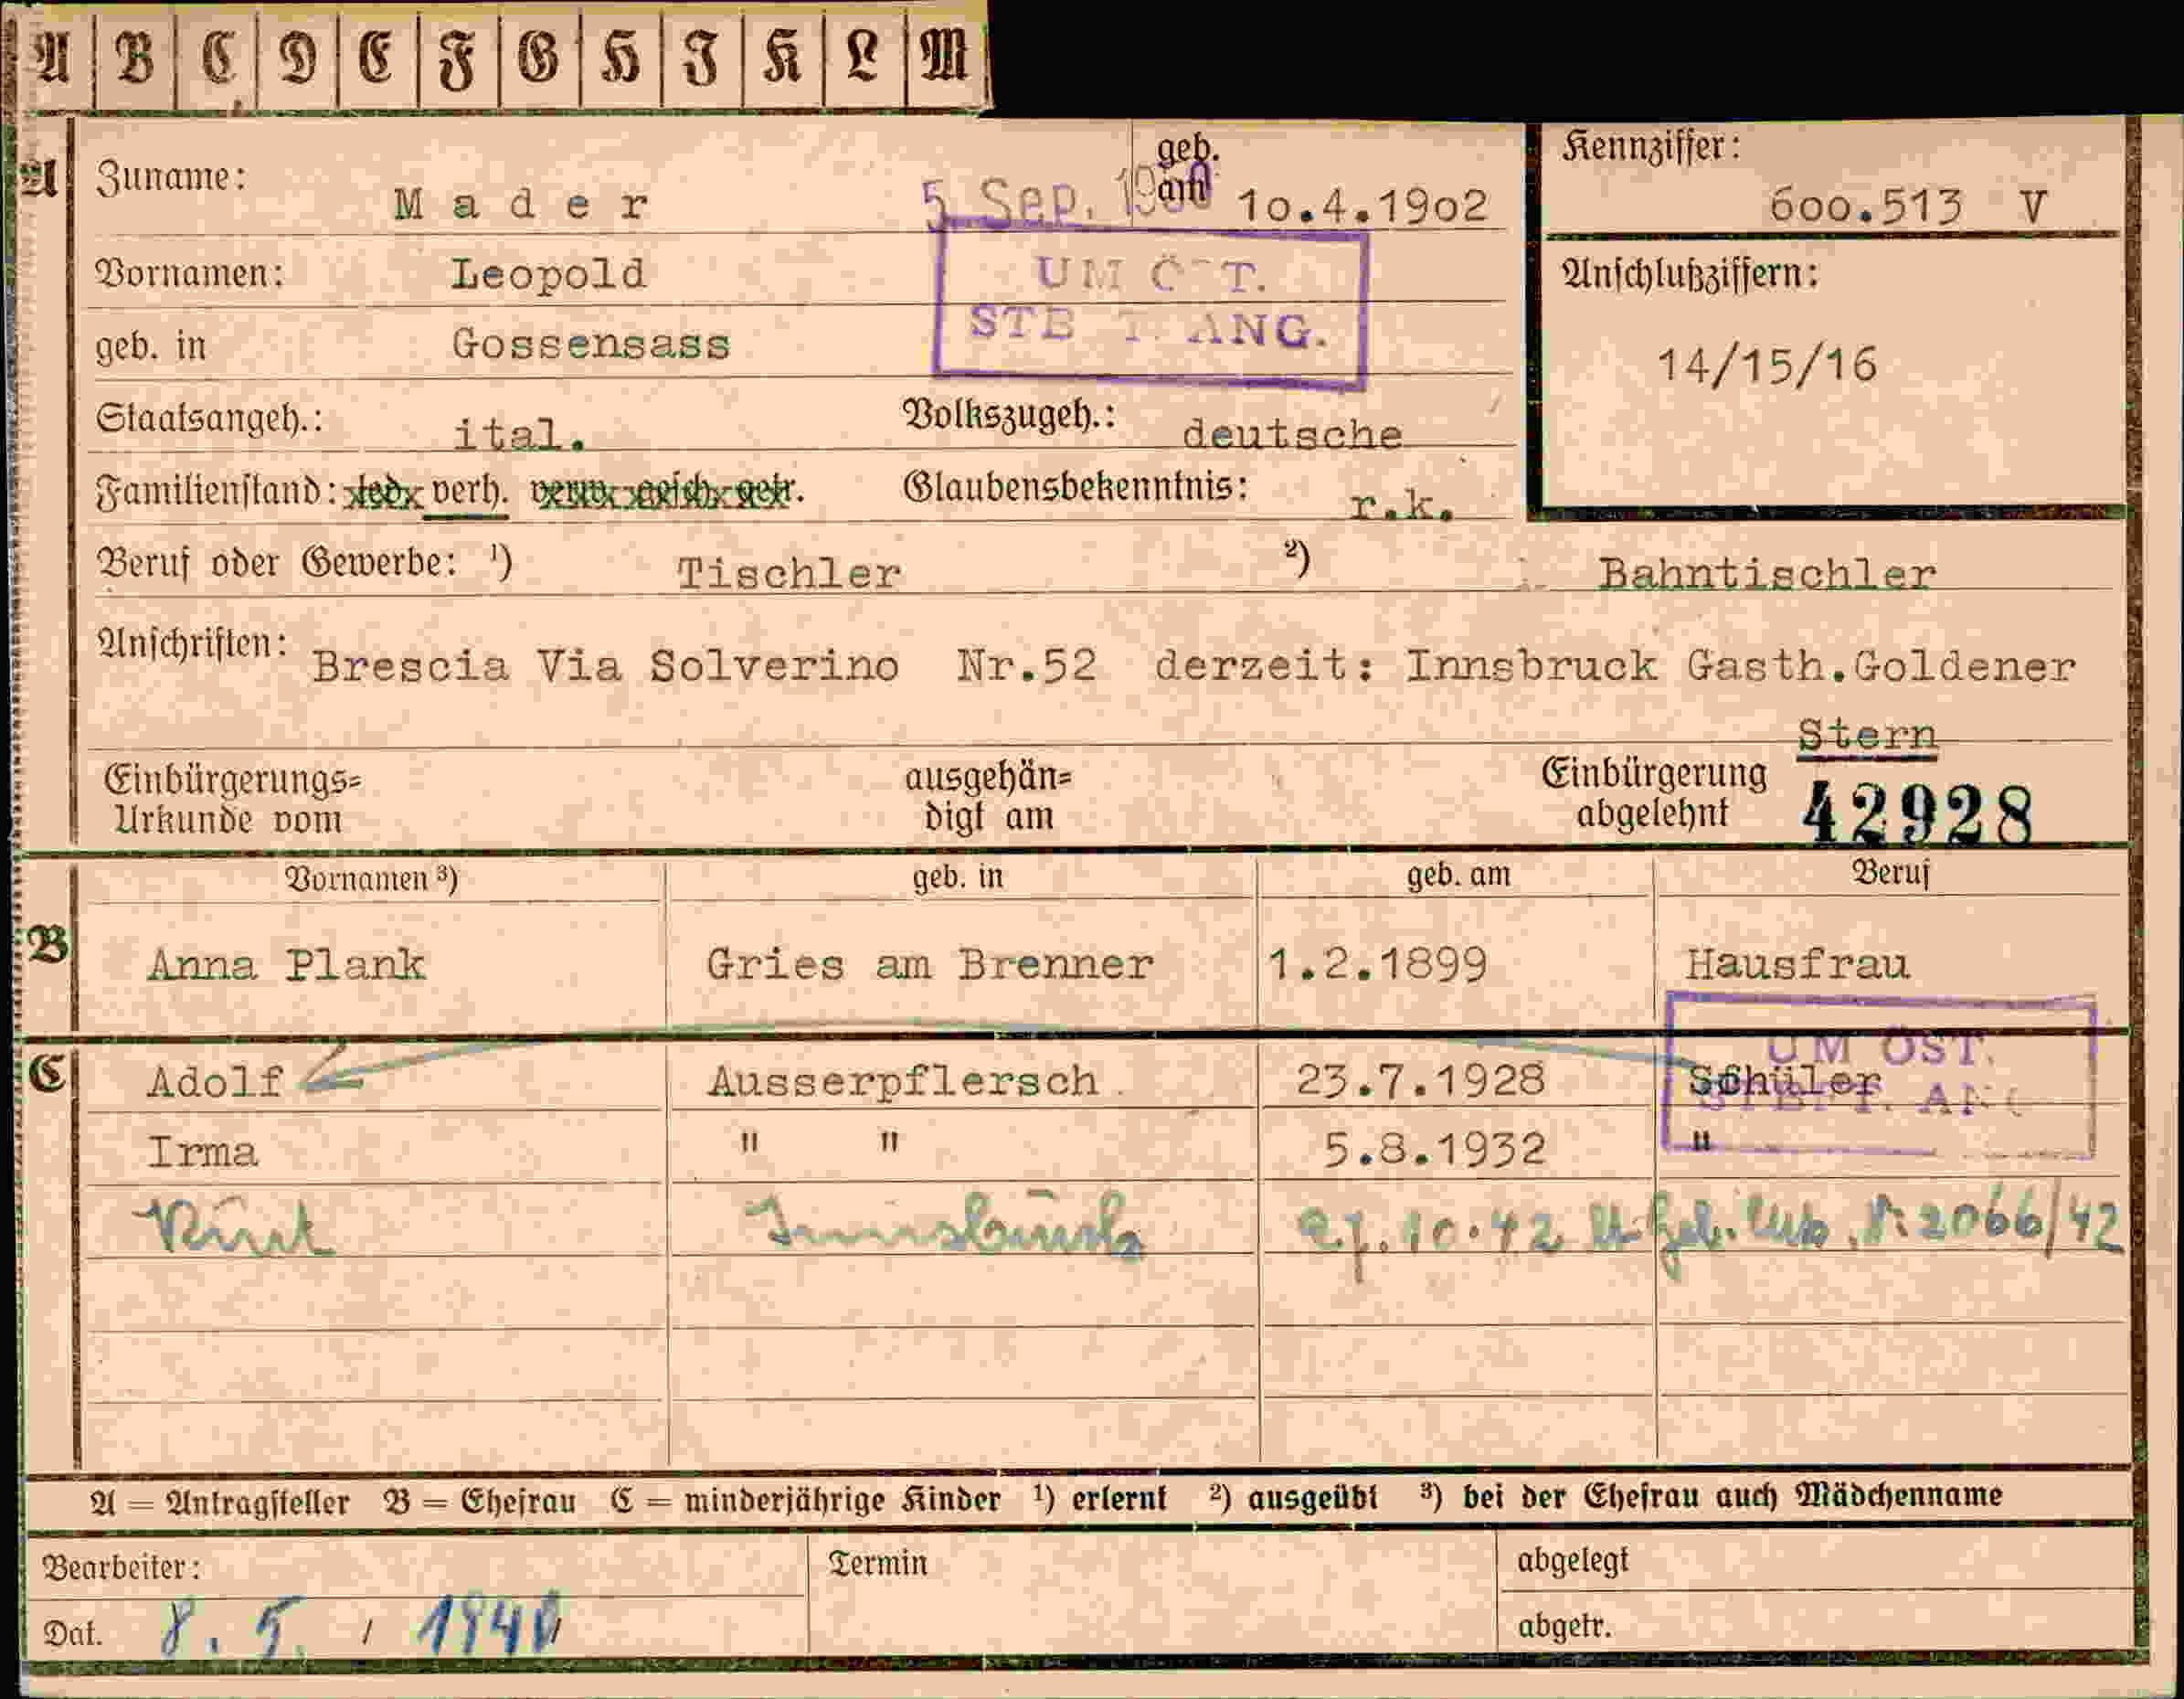 A B C D E F G H I K L M
A
Zuname: Mader geb. am 10.4.1902
5. Sep.
Kennziffer: 600.513 V
Vornamen: Leopold
UM ÖST.
STB T. ANG.
geb. in Gossensass
Anschlußziffern:
14/15/16
Staatsangeh.: ital. Volkszugeh.: deutsche
Familienstand: led. verh. verw. gesch. getr. Glaubensbekenntnis: r.k.
Beruf oder Gewerbe: ¹) Tischler ²) Bahntischler
Anschriften: Brescia Via Solverino Nr.52 derzeit: Innsbruck Gasth.Goldener
Stern
Einbürgerungs= ausgehän= Einbürgerung
Urkunde vom digt am abgelehnt 42928
Vornamen ³) geb. in geb. am Beruf
B Anna Plank Gries am Brenner 1.2.1899 Hausfrau
UM ÖST.
C Adolf Ausserpflersch 23.7.1928 Schüler
Irma " " 5.8.1932 "
Kurt Innsbruck 27.10.42 lt. Geb. Urk. Nr 2066/42
A = Antragsteller B = Ehefrau C = minderjährige Kinder ¹) erlernt ²) ausgeübt ³) bei der Ehefrau auch Mädchenname
Bearbeiter: Termin abgelegt
Dat. 8. 5. / 1940 abgetr.